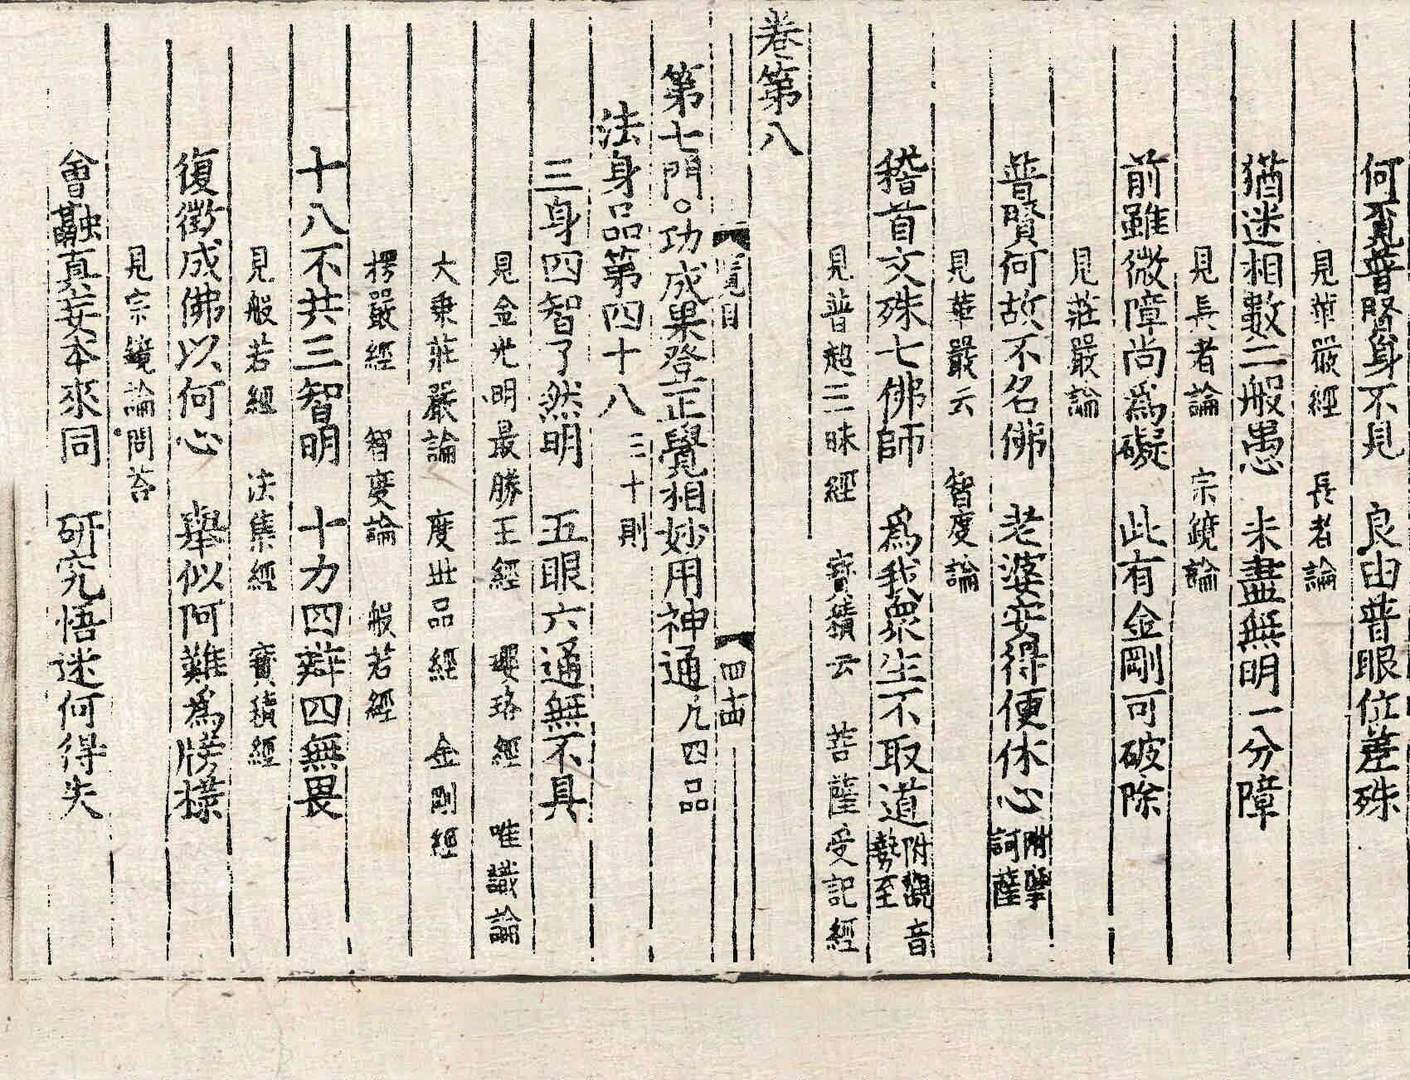 何覓普賢身不見　良由普眼位差殊
見華嚴經　長者論
猶迷相數二般愚　未盡無明一分障
見長者論　宗鏡論
前雖微障尚爲礙　此有金剛可破除
見莊嚴論
普賢何故不名佛　老婆安得便休心　附摩訶薩
見華嚴云　智度論
稽首文殊七佛師　爲我衆生不取道　附觀音勢至
見普超三昧經　寶積云　菩薩受記經
卷第八
覽目　四十四
第七門。功成果登正覺相妙用神通　凡四品
法身品第四十八　三十則
三身四智了然明　五眼六通無不具
見金光明最勝王經　瓔珞經　唯識論
大乗莊嚴論　度世品經　金剛經
楞嚴經　智度論　般若經
十八不共三智明　十力四辯四無畏
見般若經　法集經　寶積經
復徵成佛以何心　舉似阿難爲牓樣
見宗鏡論問荅
會融真妄本來同　研究悟迷何得失